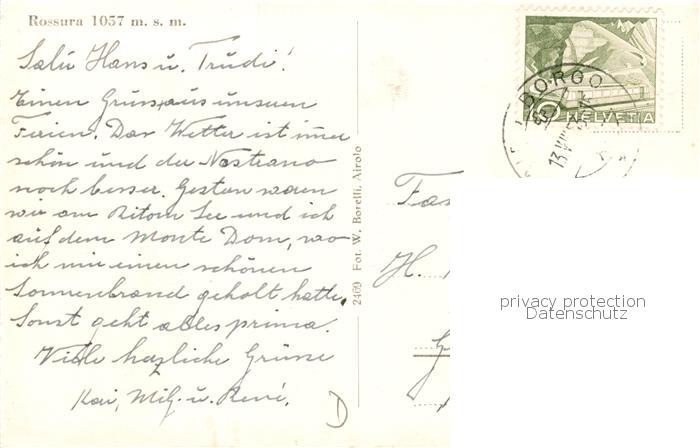 Rossura 1057 m. s. m.
Salü Hans u. Trudi!
Einen Gruss aus unseren
Ferien. Das Wetter ist immer
schön und der Nostrano
noch besser. Gestern waren
wir am Ritom See und ich
auf dem Monte Dom, wo
ich mir einen schönen
Sonnenbrand geholt hatte.
Sonst geht alles prima.
Viele herzliche Grüsse
Kai, Mily u. René.
D
2469 Fot. W. Borelli, Airolo
HELVETIA
BORGO
13 VIII
Fa
H.
privacy protection
Datenschutz